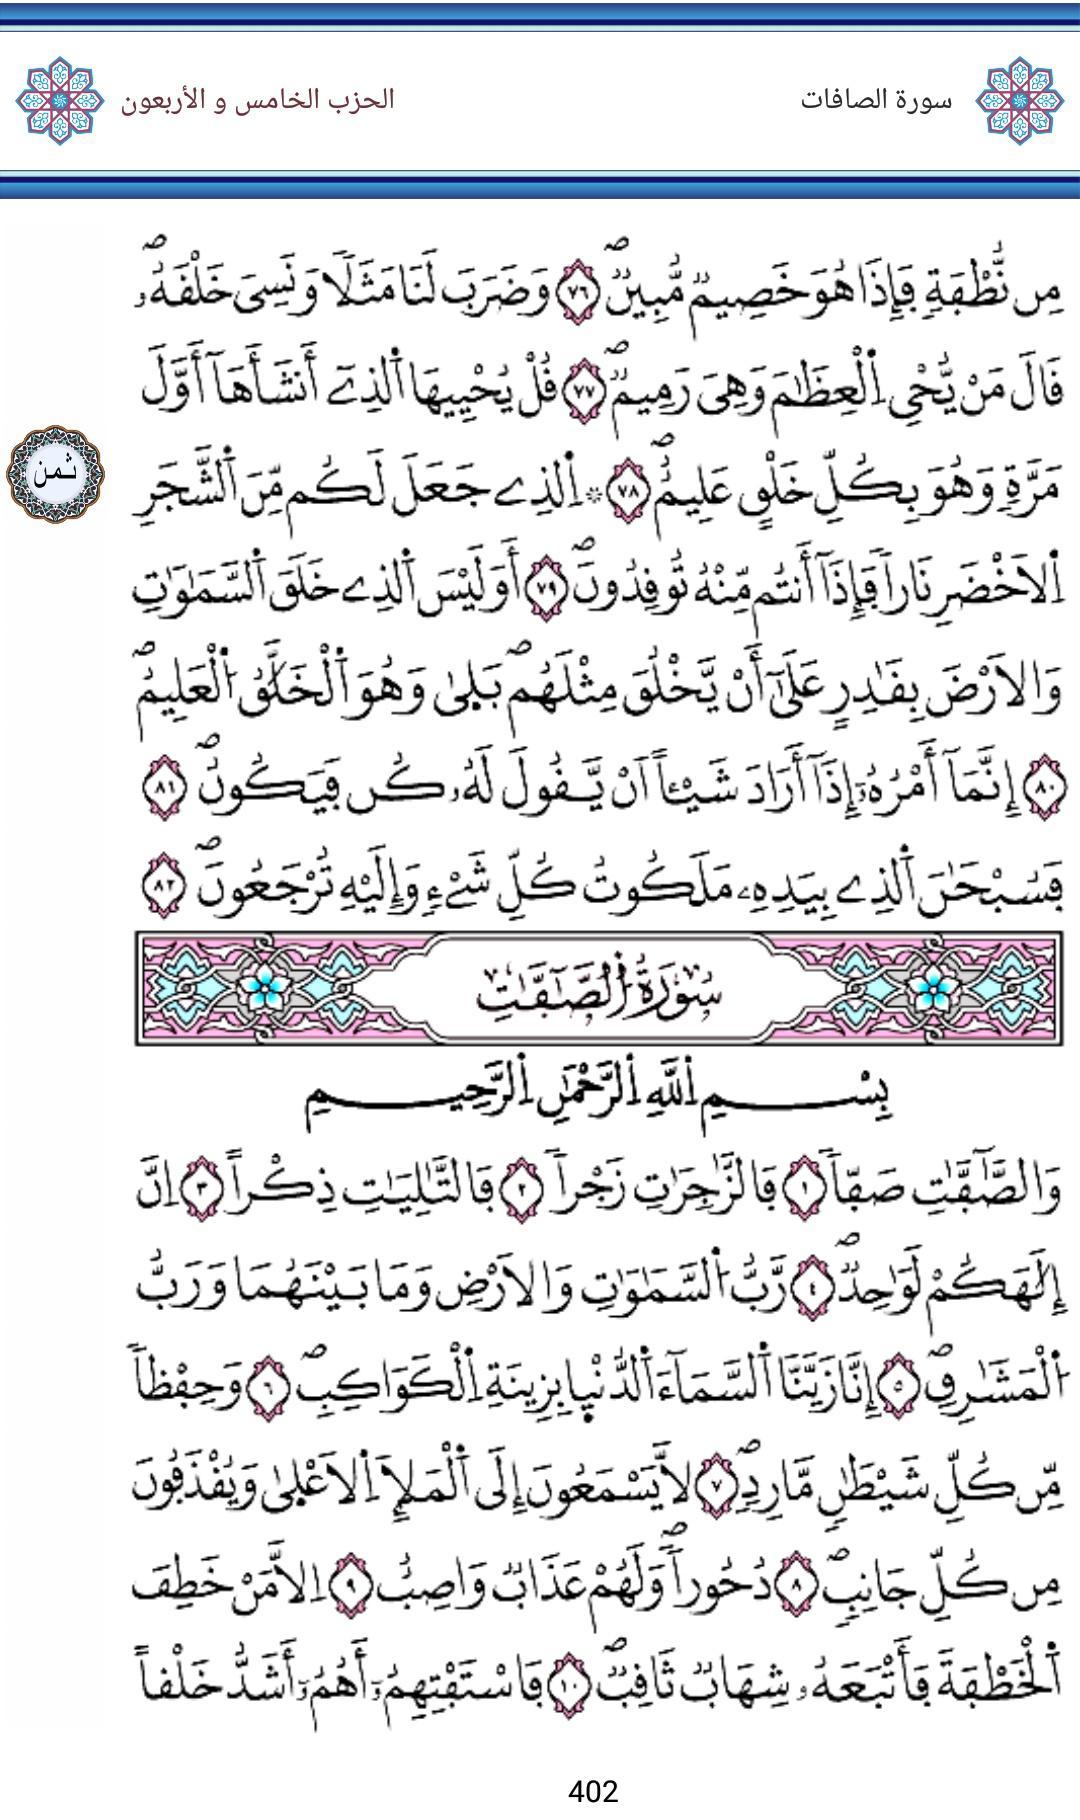 سورة الصافات
الحزب الخامس و الأربعون
مِن نُّطْفَةٍ فَإِذَا هُوَ خَصِيمٌ مُّبِينٌ ٧٦ وَضَرَبَ لَنَا مَثَلًا وَنَسِىَ خَلْقَهُۥ
قَالَ مَنْ يُّحْيِ اِلْعِظَٰمَ وَهِىَ رَمِيمٌ ٧٧ قُلْ يُحْيِيهَا اَلذِےٓ أَنشَأَهَآ أَوَّلَ
ثمن
مَرَّةٍ وَهُوَ بِكُلِّ خَلْقٍ عَلِيمٌ ٧٨ ۞ اِلذِے جَعَلَ لَكُم مِّنَ اَلشَّجَرِ
اِلَاخْضَرِ نَاراً فَإِذَآ أَنتُم مِّنْهُ تُوقِدُونَ ٧٩ أَوَلَيْسَ اَلذِے خَلَقَ اَلسَّمَٰوَٰتِ
وَالَارْضَ بِقَٰدِرٍ عَلَىٰٓ أَنْ يَّخْلُقَ مِثْلَهُم بَلٜىٰ وَهُوَ اَلْخَلَّٰقُ اُلْعَلِيمُ
٨٠ إِنَّمَآ أَمْرُهُۥٓ إِذَآ أَرَادَ شَيْـٔاً اَنْ يَّقُولَ لَهُۥ كُن فَيَكُونُ ٨١
فَسُبْحَٰنَ اَلذِے بِيَدِهِۦ مَلَكُوتُ كُلِّ شَےْءٍ وَإِلَيْهِ تُرْجَعُونَ ٨٢
سُورَةُ اُلصَّٰٓفَّٰتِ
بِسْمِ اِللَّهِ اِلرَّحْمَٰنِ اِلرَّحِيمِ
وَالصَّٰٓفَّٰتِ صَفّاً ١ فَالزَّٰجِرَٰتِ زَجْراً ٢ فَالتَّٰلِيَٰتِ ذِكْراً ٣ اِنَّ
إِلَٰهَكُمْ لَوَٰحِدٌ ٤ رَّبُّ اُلسَّمَٰوَٰتِ وَالَارْضِ وَمَا بَيْنَهُمَا وَرَبُّ
اُلْمَشَٰرِقِ ٥ إِنَّا زَيَّنَّا اَلسَّمَآءَ اَلدُّنْيٜا بِزِينَةِ اِلْكَوَاكِبِ ٦ وَحِفْظاً
مِّن كُلِّ شَيْطَٰنٍ مَّارِدٍ ٧ لَّا يَسْمَعُونَ إِلَى اَلْمَلَإِ اِلَاعْلٜىٰ وَيُقْذَفُونَ
مِن كُلِّ جَانِبٍ ٨ دُحُوراً وَلَهُمْ عَذَابٌ وَاصِبٌ ٩ اِلَّا مَنْ خَطِفَ
اَلْخَطْفَةَ فَأَتْبَعَهُۥ شِهَابٌ ثَاقِبٌ ١٠ فَاسْتَفْتِهِمُۥٓ أَهُمُۥٓ أَشَدُّ خَلْقاً
402